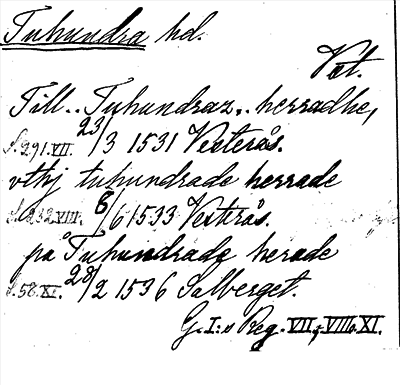 Tuhundra hd.
Vstl.
Till.. Tuhundraz.. herradhe,
s. 291. VII. 23/3 1531 Vesterås.
vthj tuhundrade herrade
s. 232 VIII. 6/6 1533 Vesterås.
på Tuhundrade herade
s. 58. XI. 28/2 1536 Salberget.
G. I:s Reg. VII, VIII o. XI.